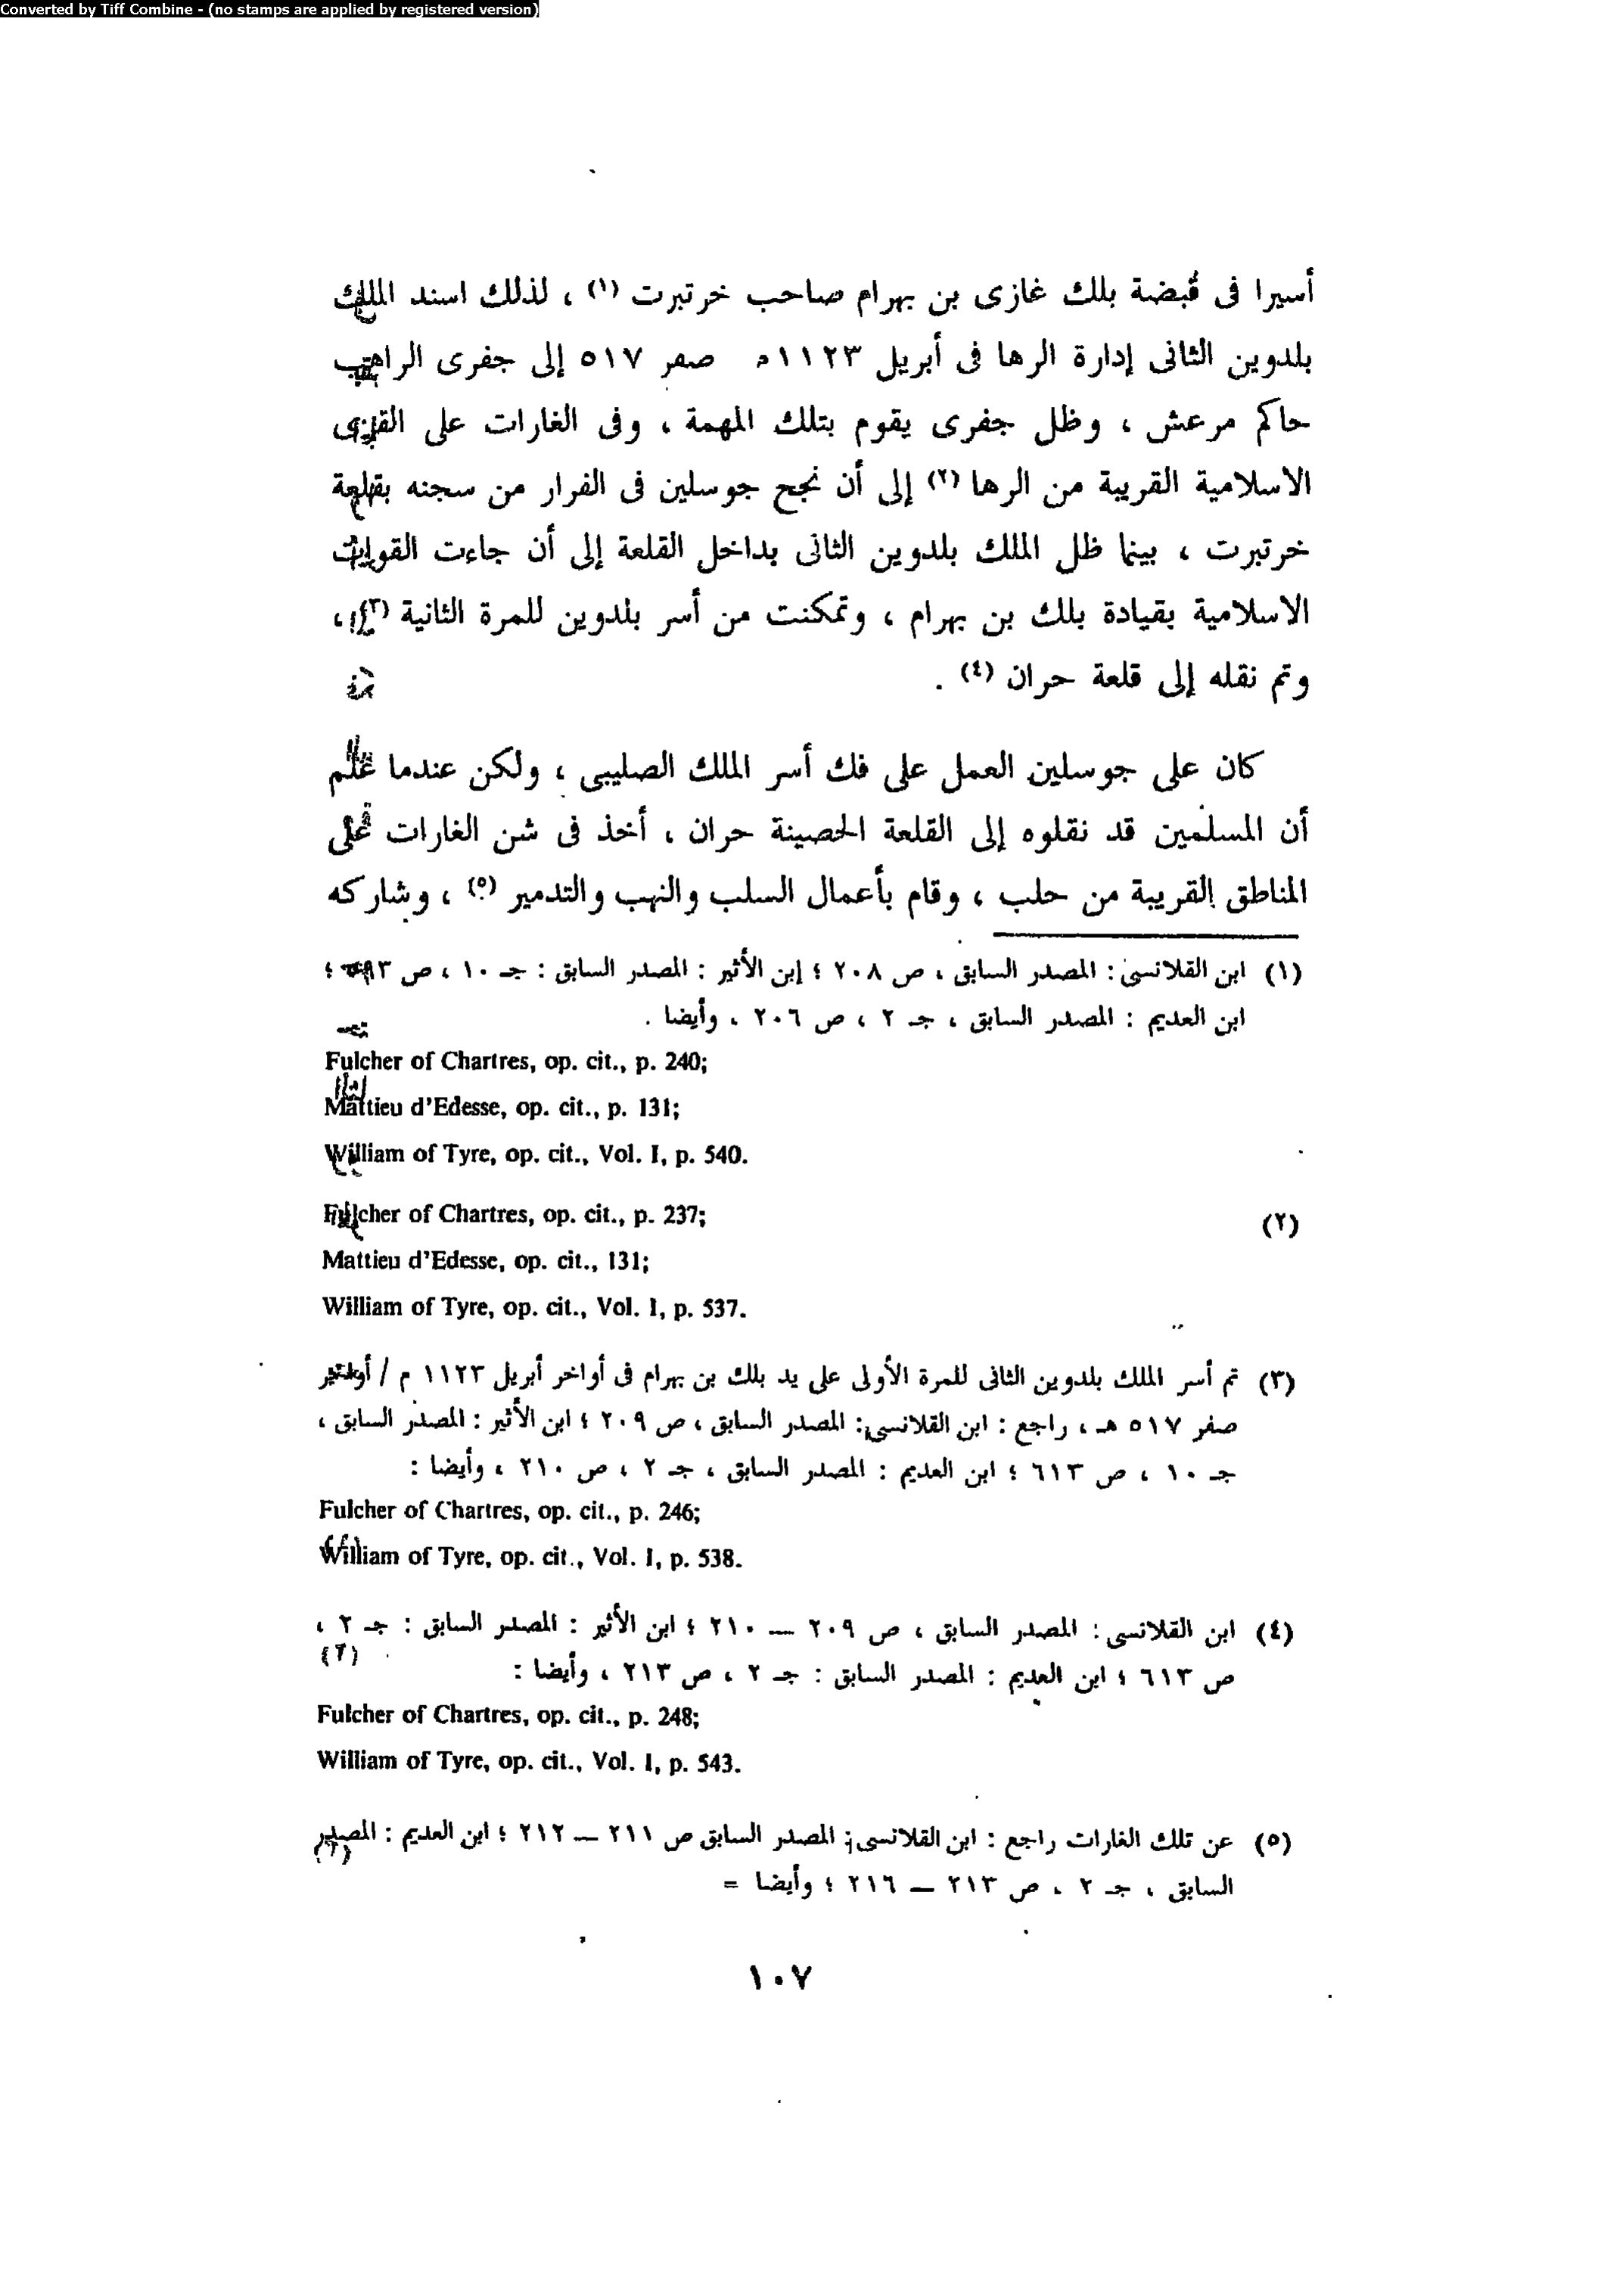 Converted by Tiff Combine - (no stamps are applied by registered version)
أسيرا فى قبضة بلك غازى بن بهرام صاحب خرتبرت (١) ، لذلك اسند الملك
بلدوين الثانى إدارة الرها فى أبريل ١١٢٣م صفر ٥١٧ إلى جفرى الراهب
حاكم مرعش ، وظل جفرى يقوم بتلك المهمة ، وفى الغارات على القرى
الاسلامية القريبة من الرها (٢) إلى أن نجح جوسلين فى الفرار من سجنه بقلعة
خرتبرت ، بينما ظل الملك بلدوين الثانى بداخل القلعة إلى أن جاءت القوات
الاسلامية بقيادة بلك بن بهرام ، وتمكنت من أسر بلدوين للمرة الثانية (٣) ،
وتم نقله إلى قلعة حران (٤) .
كان على جوسلين العمل على فك أسر الملك الصليبى ، ولكن عندما علم
أن المسلمين قد نقلوه إلى القلعة الحصينة حران ، أخذ فى شن الغارات على
المناطق القريبة من حلب ، وقام بأعمال السلب والنهب والتدمير (٥) ، وشاركه
(١) ابن القلانسى : المصدر السابق ، ص ٢٠٨ ؛ إبن الأثير : المصدر السابق : جـ ١٠ ، ص ؛
ابن العديم : المصدر السابق ، جـ ٢ ، ص ٢٠٦ ، وأيضا .
Fulcher of Chartres, op. cit., p. 240;
Mattieu d'Edesse, op. cit., p. 131;
William of Tyre, op. cit., Vol. I, p. 540.
(٢) Fulcher of Chartres, op. cit., p. 237;
Mattieu d'Edesse, op. cit., 131;
William of Tyre, op. cit., Vol. I, p. 537.
(٣) تم أسر الملك بلدوين الثانى للمرة الأولى على يد بلك بن بهرام فى أواخر أبريل ١١٢٣ م / أواخر
صفر ٥١٧ هـ ، راجع : ابن القلانسى : المصدر السابق ، ص ٢٠٩ ؛ ابن الأثير : المصدر السابق ،
جـ ١٠ ، ص ٦١٣ ؛ ابن العديم : المصدر السابق ، جـ ٢ ، ص ٢١٠ ، وأيضا :
Fulcher of Chartres, op. cit., p. 246;
William of Tyre, op. cit., Vol. I, p. 538.
(٤) ابن القلانسى : المصدر السابق ، ص ٢٠٩ — ٢١٠ ؛ ابن الأثير : المصدر السابق : جـ ٢ ،
ص ٦١٣ ؛ ابن العديم : المصدر السابق : جـ ٢ ، ص ٢١٣ ، وأيضا :
Fulcher of Chartres, op. cit., p. 248;
William of Tyre, op. cit., Vol. I, p. 543.
(٥) عن تلك الغارات راجع : ابن القلانسى ; المصدر السابق ص ٢١١ — ٢١٢ ؛ ابن العديم : المصدر
السابق ، جـ ٢ ، ص ٢١٣ — ٢١٦ ؛ وأيضا =
١٠٧